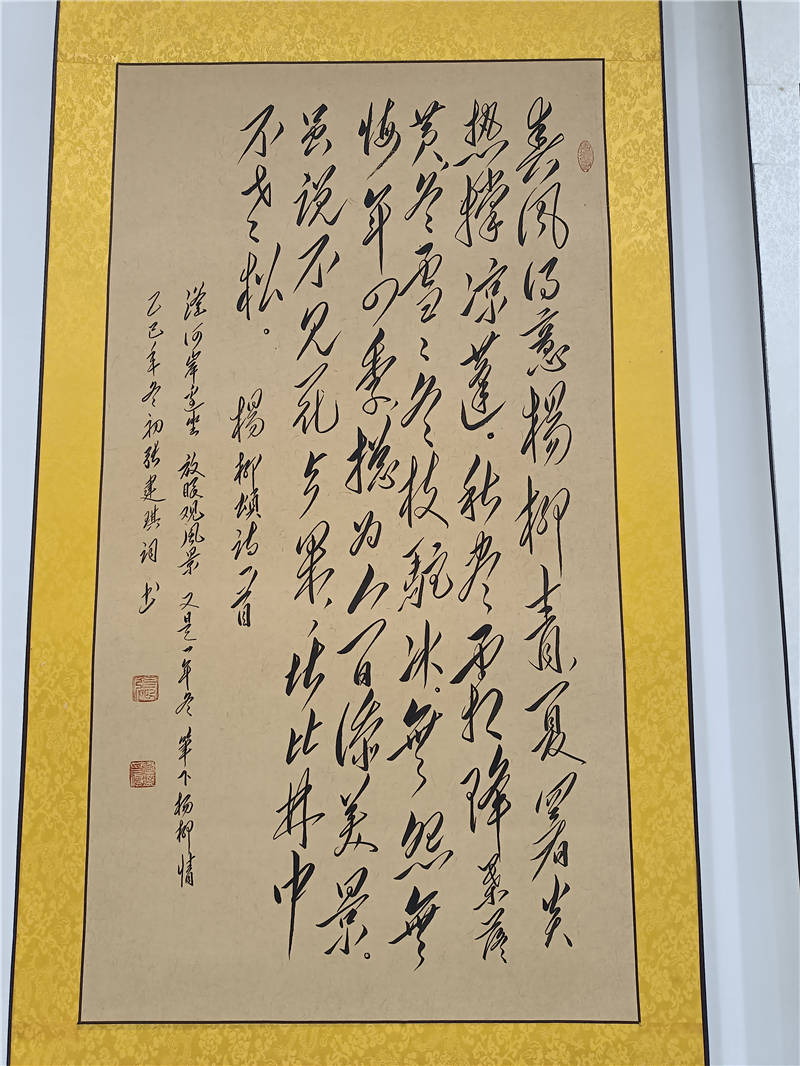 春风得意楊柳青、夏署炎
热撑凉蓬。秋尽霜降葉落
黄、冬雪々冬枝駝冰。無怨無
悔年四季、總为人间添美景。
虽说不见花与果、堪比林中
不老松。
楊柳頌诗一首
河岸边坐 放眼观风景 又是一年冬 筆下杨柳情
乙巳年冬初张建琪词 书